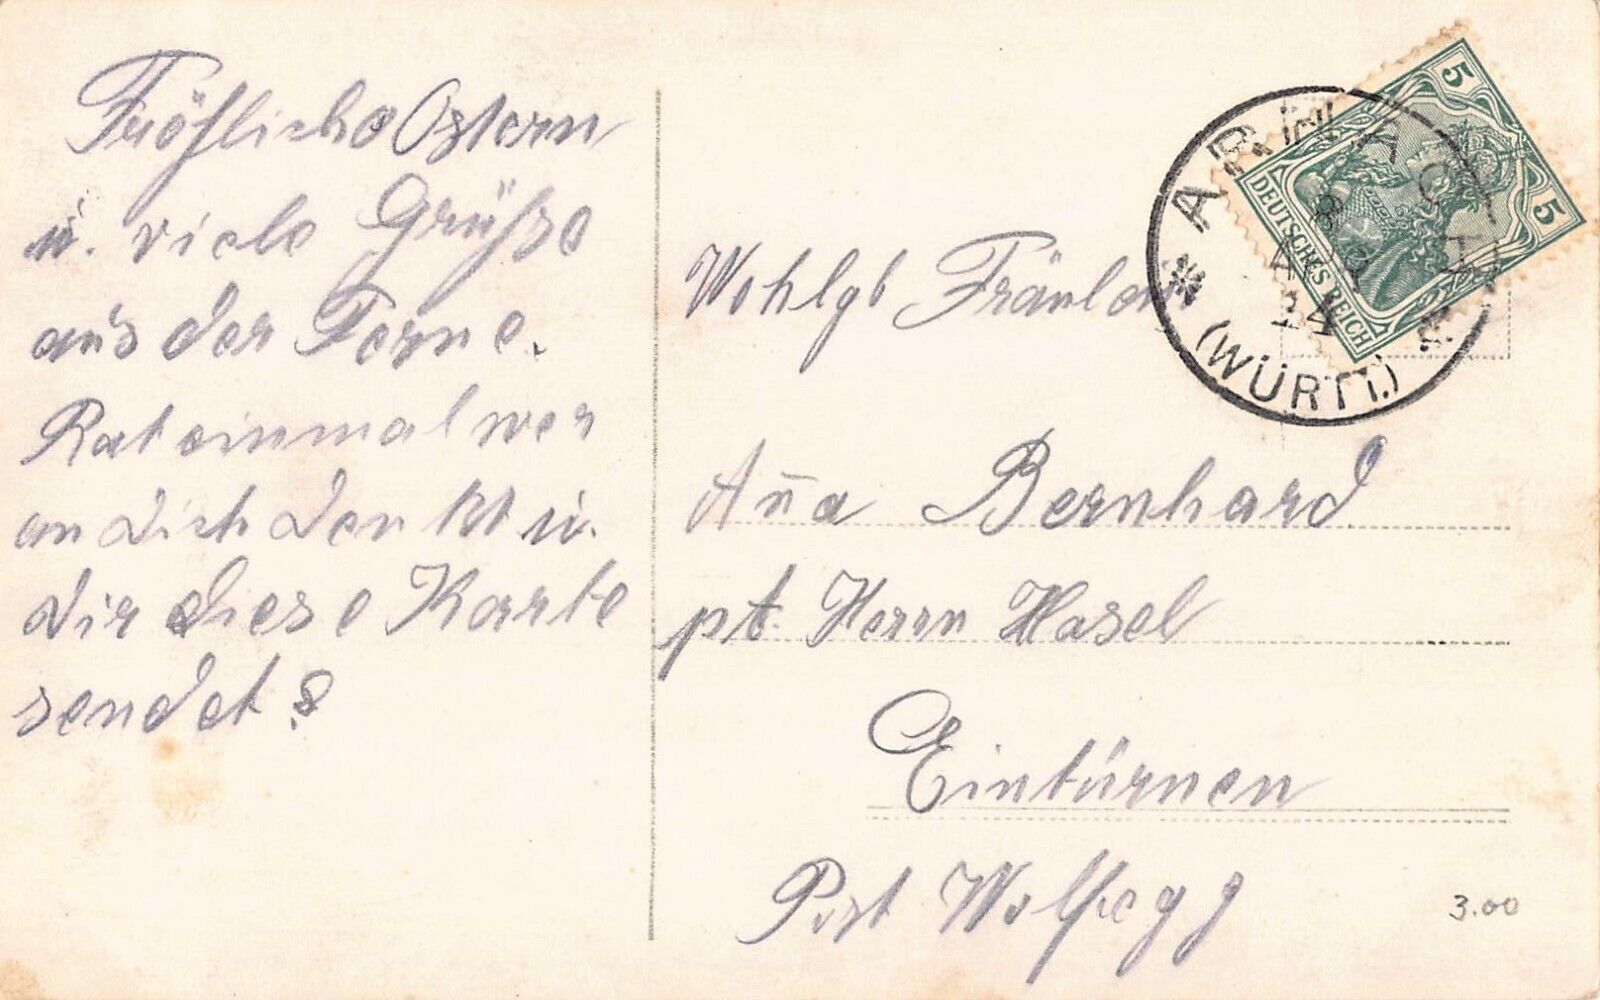 Fröhliche Ostern
u. viele Grüße
aus der Ferne.
Rat einmal wer
an dich denkt u.
dir diese Karte
sendet?
Wohlgb Fräulein
Ana Bernhard
pt. Herrn Hasel
Eintürnen
Post Wolfegg
3.00
5
5
DEUTSCHES REICH
* ARNACH *
8
14
(WÜRTT.)